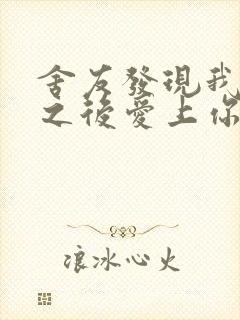 舍友發現我
之後愛上你
浪冰心火